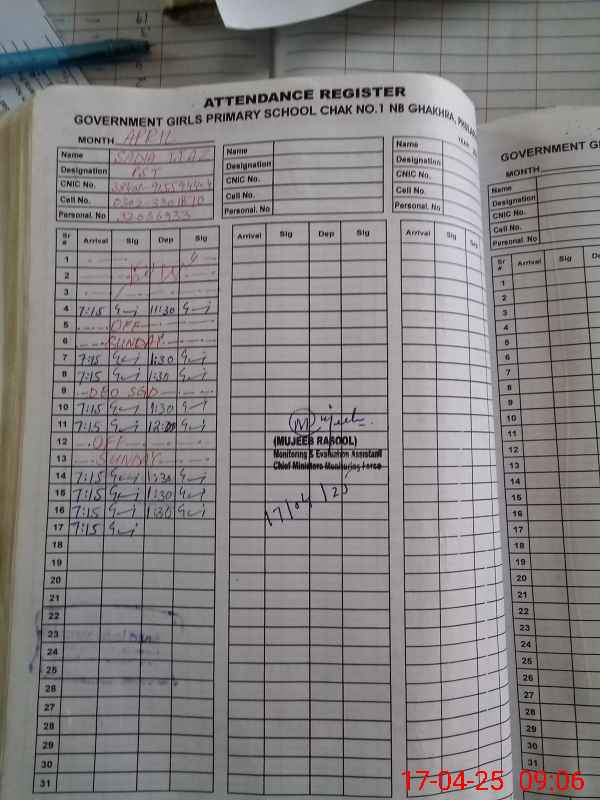 ATTENDANCE REGISTER
GOVERNMENT GIRLS PRIMARY SCHOOL CHAK NO.1 NB GHAKHRA,
MONTH APRIL
YEAR
Name SADIA IJAZ
Designation PST
CNIC No.
Cell No.
Personal. No
Name
Designation
CNIC No.
Cell No.
Personal. No
Name
Designation
CNIC No.
Cell No.
Personal. No
Sr # Arrival Sig Dep Sig
Arrival Sig Dep Sig
Arrival Sig
1
2
3
4 7:15 11:30
5 OFF
6 SUNDAY
7 7:15 1:30
8 7:15 1:30
9 DEO SGD
10 7:15 1:30
11 7:15 12:00
12 OFF
13 SUNDAY
14 7:15 1:30
15 7:15 1:30
16 7:15 1:30
17 7:15
18
19
20
21
22
23
24
25
26
27
28
29
30
31
Mujeeb
(MUJEEB RASOOL)
Monitoring & Evaluation Assistant
Chief Ministers Monitoring Force
17/04/25
GOVERNMENT
MONTH
Name
Designation
CNIC No.
Cell No.
Personal. No
Sr # Arrival Sig
1
2
3
4
5
6
7
8
9
10
11
12
13
14
15
16
17
18
19
20
21
22
23
24
25
26
27
28
29
30
31
17-04-25 09:06